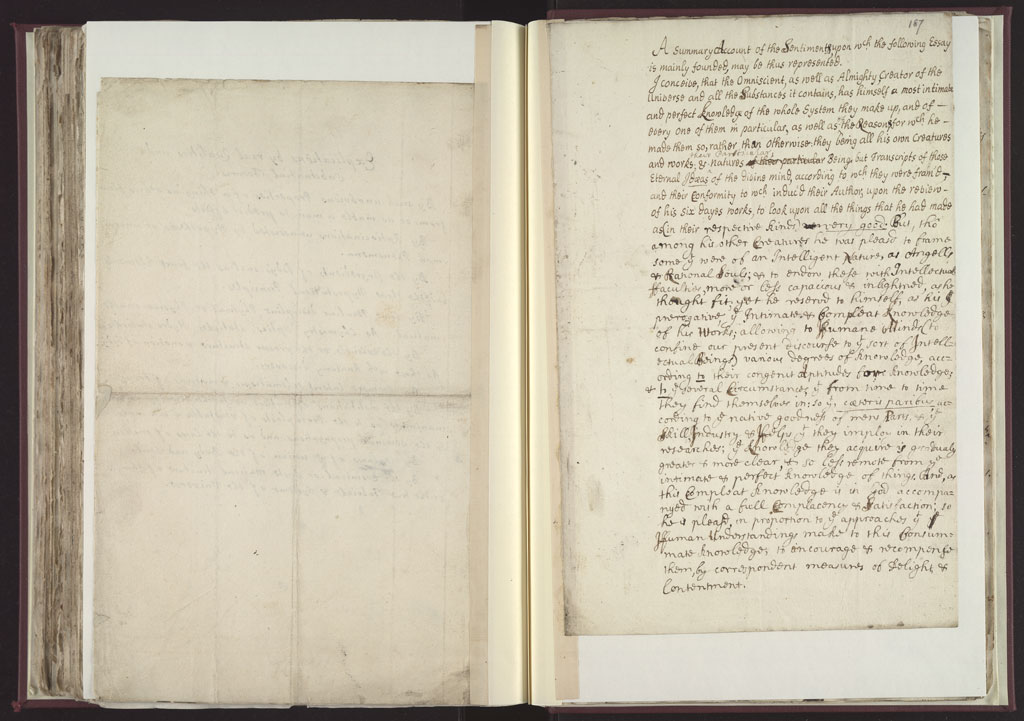 187
A summary Account of the Sentiments upon wch the following Essay
is mainly founded, may be thus represented.
I conceive, that the Omniscient, as well as Almighty Creator of the
Universe and all the Substances it contains, has himself a most intimate
and perfect Knowledge of the whole System they make up, and of
every one of them in particular, as well as the Reasons for wch he
made them so, rather than otherwise: they being all his own Creatures
and works, & their particular natures
of their particular Beings but Transcripts of those
Eternal Ideas of the divine mind, according to wch they were fram'd
and their Conformity to wch induc'd their Author, upon the review
of his six dayes works, to look upon all the things that he had made
as (in their respective kinds) very good. But, tho
among his other Creatures he was pleasd to frame
some yt were of an Intelligent Nature, as Angells
& Rational Souls; & to endow these with Intellectual
Faculties, more or less capacious & inlightned, as he
thought fit; yet he reserv'd to himself, as his
prerogative ye Intimate & Compleat Knowledge
of his Works; allowing to Humane Minds (to
confine our present discourse to yt sort of Intell-
ectual Beings) various degrees of Knowledge, acc-
ording to their congenit Aptitudes for Knowledge,
& to ye several Circumstances yt from time to time
they find themselves in: so yt, cæteris paribus, ac-
cording to ye native goodness of mens Parts, & ye
Skill, Industry & Helps yt they imploy in their
researches; ye Knowledge they acquire is gradualy
greater & more clear, & so less remote from ye
intimate & perfect Knowledge of things. And, as
this Compleat Knowledge is in God accompa-
nyed with a full Complacency & Satisfaction; so
he is pleasd, in proportion to ye approaches yt
Human Understandings make to this Consum-
mate Knowledge, to encourage & recompense
them, by correspondent measures of Delight &
Contentment.